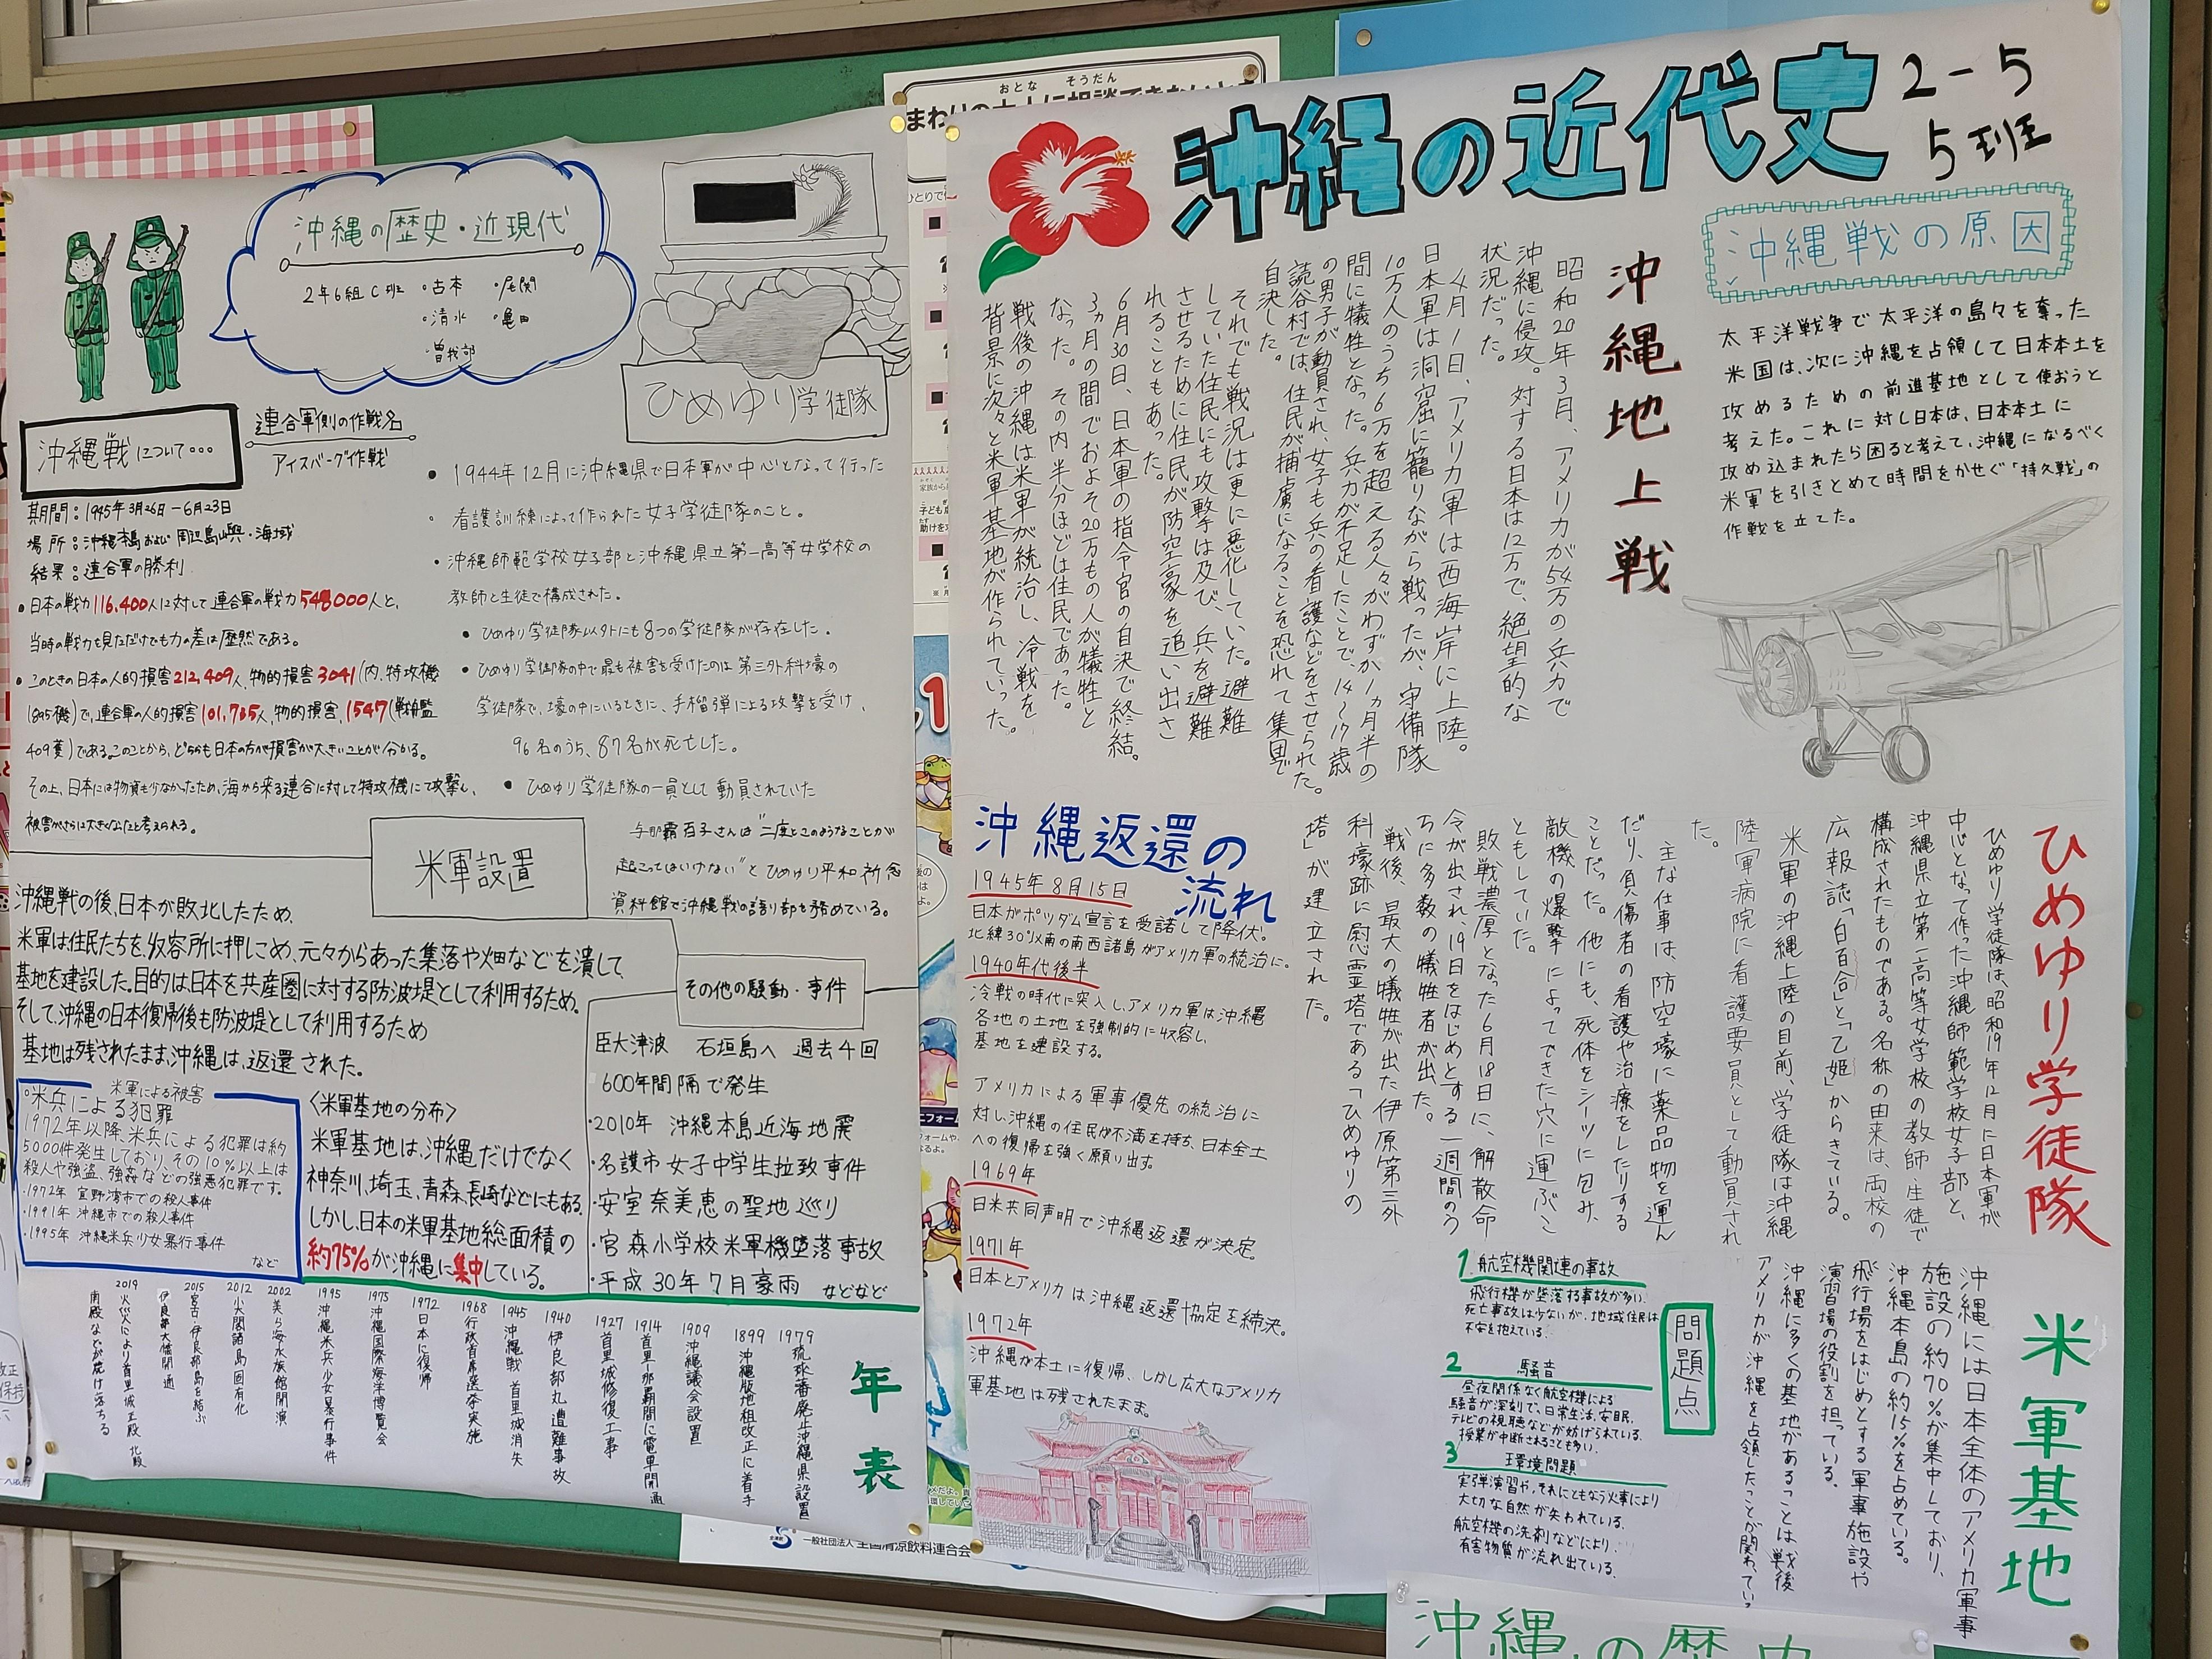 沖縄の歴史・近現代
2年6組C班 ・古本 ・尾関
・清水 ・亀田
・曽我部
ひめゆり学徒隊
沖縄戦について…
連合軍側の作戦名
アイスバーグ作戦
期間：1945年3月26日-6月23日
場所：沖縄本島および周辺島嶼・海域
結果：連合軍の勝利
・日本の戦力116,400人に対して連合軍の戦力548000人と、
当時の戦力を見ただけでも力の差は歴然である。
・このときの日本の人的損害212,409人、物的損害3041(内、特攻機
1895機)で、連合軍の人的損害101,735人、物的損害、1547(戦艦
409隻)である。このことから、どちらも日本の方が損害が大きいことが分かる。
その上、日本には物資も少なかったため、海から来る連合に対して特攻機にて攻撃し、
被害がさらに大きくなったと考えられる。
・1944年12月に沖縄県で日本軍が中心となって行った
・看護訓練によって作られた女子学徒隊のこと。
・沖縄師範学校女子部と沖縄県立第一高等女学校の
教師と生徒で構成された。
・ひめゆり学徒隊以外にも8つの学徒隊が存在した。
・ひめゆり学徒隊の中で最も被害を受けたのは第三外科壕の
学徒隊で、壕の中にいるときに、手榴弾による攻撃を受け、
96名のうち、87名が死亡した。
・ひめゆり学徒隊の一員として動員されていた
与那覇百子さんは"二度とこのようなことが
起こってはいけない"とひめゆり平和祈念
資料館で沖縄戦の語り部を務めている。
米軍設置
沖縄戦の後、日本が敗北したため、
米軍は住民たちを収容所に押しこめ、元々からあった集落や畑などを潰して、
基地を建設した。目的は日本を共産圏に対する防波堤として利用するため。
そして、沖縄の日本復帰後も防波堤として利用するため
基地は残されたまま、沖縄は、返還された。
米軍による被害
○米兵による犯罪
1972年以降、米兵による犯罪は約
5000件発生しており、その10%以上は
殺人や強盗、強姦などの強悪犯罪です。
・1972年 宜野湾市での殺人事件
・1991年 沖縄市での殺人事件
・1995年 沖縄米兵少女暴行事件
など
〈米軍基地の分布〉
米軍基地は、沖縄だけでなく
神奈川、埼玉、青森、長崎などにもある。
しかし、日本の米軍基地総面積の
約75%が沖縄に集中している。
その他の騒動・事件
巨大津波 石垣島へ 過去4回
600年間隔で発生
・2010年 沖縄本島近海地震
・名護市女子中学生拉致事件
・安室奈美恵の聖地巡り
・宮森小学校米軍機墜落事故
・平成30年7月豪雨 などなど
年表
1979 琉球藩廃止沖縄県設置
1899 沖縄版地租改正に着手
1909 沖縄議会設置
1914 首里-那覇間に電車開通
1927 首里城修復工事
1940 伊良部丸遭難事故
1945 沖縄戦 首里城消失
1968 行政首席選挙実施
1972 日本に復帰
1975 沖縄国際海洋博覧会
1995 沖縄米兵少女暴行事件
2002 美ら海水族館開演
2012 尖閣諸島国有化
2015 宮古-伊良部島を結ぶ
伊良部大橋開通
2019 火災により首里城正殿 北殿
南殿などが焼け落ちる
おとな そうだん
沖縄の近代史
2-5
5班
沖縄戦の原因
太平洋戦争で太平洋の島々を奪った
米国は、次に沖縄を占領して日本本土を
攻めるための前進基地として使おうと
考えた。これに対し日本は、日本本土に
攻め込まれたら困ると考えて、沖縄になるべく
米軍を引きとめて時間をかせぐ「持久戦」の
作戦を立てた。
沖縄地上戦
昭和20年3月、アメリカが54万の兵力で
沖縄に侵攻。対する日本は12万で、絶望的な
状況だった。
4月1日、アメリカ軍は西海岸に上陸。
日本軍は洞窟に籠りながら戦ったが、守備隊
10万人のうち6万を超える人々がわずか1ヵ月半の
間に犠牲となった。兵力が不足したことで、14～17歳
の男子が動員され、女子も兵の看護などをさせられた。
読谷村では、住民が捕虜になることを恐れて集団で
自決した。
それでも戦況は更に悪化していた。避難
していた住民にも攻撃は及び、兵を避難
させるために住民が防空豪を追い出さ
れることもあった。
6月30日、日本軍の指令官の自決で終結。
3ヵ月の間でおよそ20万もの人が犠牲と
なった。その内半分ほどは住民であった。
戦後の沖縄は米軍が統治し、冷戦を
背景に次々と米軍基地が作られていった。
ひめゆり学徒隊
ひめゆり学徒隊は、昭和19年12月に日本軍が
中心となって作った沖縄師範学校女子部と、
沖縄県立第一高等女学校の教師・生徒で
構成されたものである。名称の由来は、両校の
広報誌「白百合」と「乙姫」からきている。
米軍の沖縄上陸の目前、学徒隊は沖縄
陸軍病院に看護要員として動員され
た。
主な仕事は、防空壕に薬品物を運ん
だり、負傷者の看護や治療をしたりする
ことだった。他にも、死体をシーツに包み、
敵機の爆撃によってできた穴に運ぶこ
ともしていた。
敗戦濃厚となった6月18日に、解散命
令が出され、19日をはじめとする一週間のう
ちに多数の犠牲者が出た。
戦後、最大の犠牲が出た伊原第三外
科壕跡に慰霊塔である「ひめゆりの
塔」が建立された。
沖縄返還の
流れ
1945年8月15日
日本がポツダム宣言を受諾して降伏!
北緯30°以南の南西諸島がアメリカ軍の統治に。
1940年代後半
冷戦の時代に突入し、アメリカ軍は沖縄
各地の土地を強制的に収容し、
基地を建設する。
アメリカによる軍事優先の統治に
対し、沖縄の住民が不満を持ち、日本全土
への復帰を強く願い出す。
1969年
日米共同声明で沖縄返還が決定。
1971年
日本とアメリカは沖縄返還協定を締決。
1972年
沖縄が本土に復帰、しかし広大なアメリカ
軍基地は残されたまま。
米軍基地
沖縄には日本全体のアメリカ軍事
施設の約70%が集中しており、
沖縄本島の約15%を占めている。
飛行場をはじめとする軍事施設や
演習場の役割を担っている。
沖縄に多くの基地があることは戦後
アメリカが沖縄を占領したことが関わってい
問題点
1 航空機関連の事故
飛行機が墜落する事故が多い。
死亡事故は少ないが、地域住民は
不安を抱えている。
2 騒音
昼夜関係なく航空機による
騒音が深刻で、日常生活、安眠、
テレビの視聴などが妨げられている。
授業が中断されることも多い。
3 環境問題
実弾演習や、それにともなう火事により
大切な自然が失われている。
航空機の洗剤などにより
有害物質が流れ出ている。
一般社団法人 全国清涼飲料連合会
沖縄の歴史